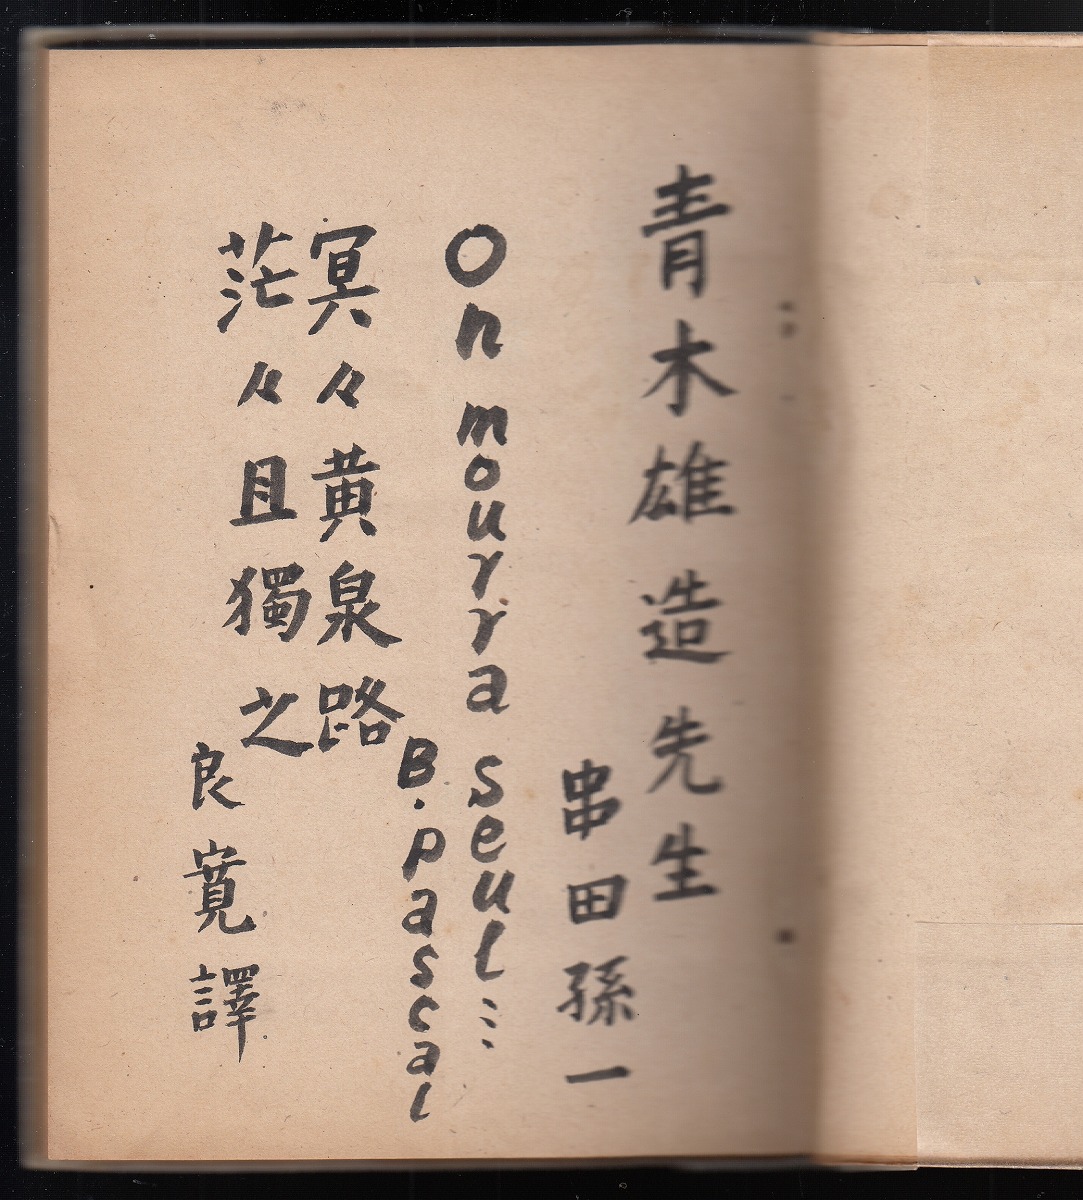 青木雄造先生
串田孫一
On mourra seul...
B. pascal
冥々黄泉路
茫々且獨之
良寛譯